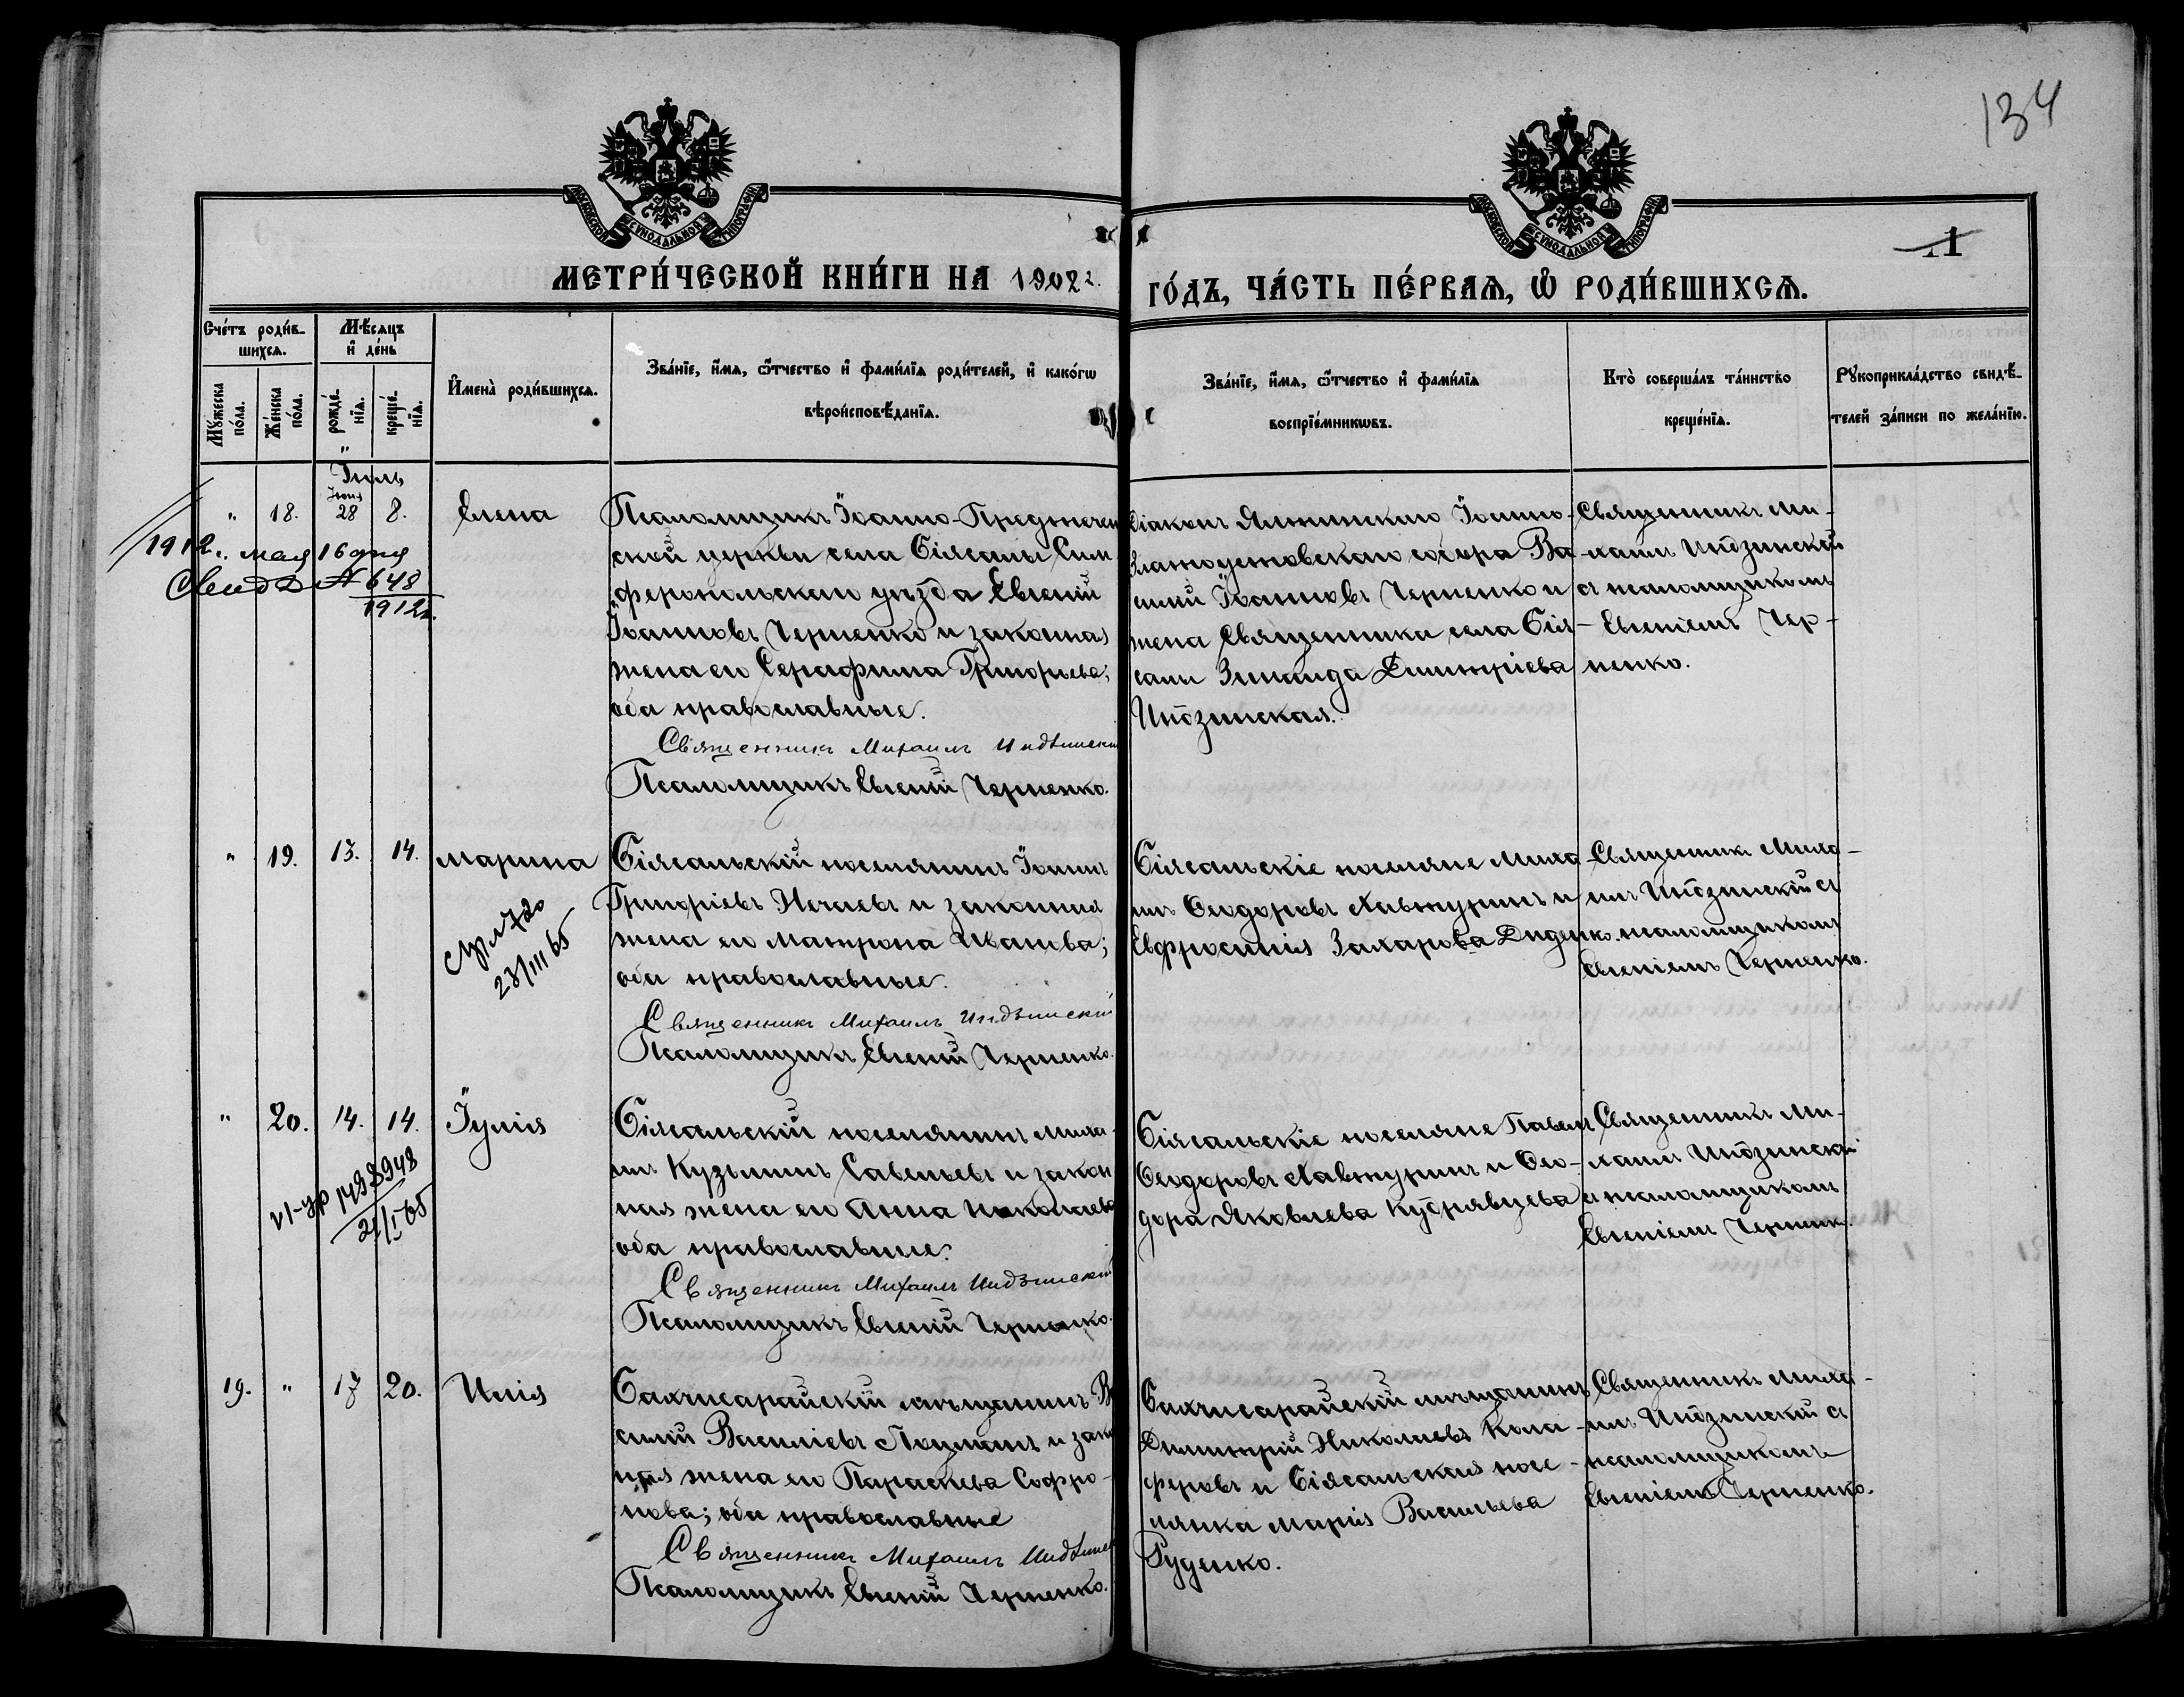 134
МОСКОВСКОЙ СѴНОДАЛЬНОЙ ТИПОГРАФІИ
МОСКОВСКОЙ СѴНОДАЛЬНОЙ ТИПОГРАФІИ
1
МЕТРИ́ЧЕСКОЙ КНИ́ГИ НА 1902 г.
ГО́ДЪ, ЧА́СТЬ ПЕ́РВАЯ, Ѡ РОДИ́ВШИХСЯ.
Сче́тъ роди́в-
шихся.
Мꙋ́жеска по́ла.
Же́нска по́ла.
Мѣ́сяцъ и҆ де́нь
рожде́-
нїя.
креще́-
нїя.
И҆мена̀ роди́вшихся.
Зва́нїе, и҆́мя, ѻ҆́тчество и҆ фами́лїя роди́телей, и҆ како́гѡ
вѣроисповѣ́данїя.
Зва́нїе, и҆́мя, ѻ҆́тчество и҆ фами́лїя
воспрїе́мникѡвъ.
Кто̀ соверша́лъ та́инство
креще́нїя.
Рꙋкоприкла́дство свидѣ́-
телей за́писи по жела́нїю.
Іюль
" 18. Іюня 28 8. Елена
Псаломщикъ Іоанно-Предтечен
ской церкви села Біясалы Сим
феропольскаго уѣзда Евгеній
Іоанновъ Черненко и законная
жена его Серафима Григорьева;
оба православные.
Священникъ Михаилъ
Псаломщикъ Евгеній Черненко.
Діаконъ Ялтинскаго Іоанно-
Златоустовскаго собора Ва-
силій Іоанновъ Черненко и
жена Священника села Бія-
салы Зинаида Димитріева
Священникъ Ми-
хаилъ
съ псаломщикомъ
Евгеніемъ Чер-
ненко.
1912 г. мая 16 дня
Свид. № 648
1912 г.
" 19. 13. 14. Марина
23/III 65
Біясальскій поселянинъ Іоаннъ
Григоріевъ Нечаевъ и законная
жена его Матрона Иванова;
оба православные.
Священникъ Михаилъ
Псаломщикъ Евгеній Черненко.
Біясальскіе поселяне Миха-
илъ Ѳеодоровъ Лавтуринъ и
Евфросинія Захарова Диденко.
Священникъ Миха-
илъ съ
псаломщикомъ
Евгеніемъ Черненко.
" 20. 14. 14. Іулія
21/I 65
Біясальскій поселянинъ Миха-
илъ Кузьминъ Савельевъ и закон
ная жена его Анна Николаева
оба православные.
Священникъ Михаилъ
Псаломщикъ Евгеній Черненко.
Біясальскіе поселяне Павелъ
Ѳеодоровъ Лавтуринъ и Ѳео-
дора Яковлева Кудрявцева
Священникъ Ми-
хаилъ
съ псаломщикомъ
Евгеніемъ Черненко.
19. " 17 20. Илія
Бахчисарайскій мѣщанинъ Ва
силій Василіевъ и закон
ная жена его Параскева Софро-
нова; оба православные
Священникъ Михаилъ
Псаломщикъ Евгеній Черненко.
Бахчисарайскій мѣщанинъ
Димитрій Николаевъ
и Біясальская посе-
лянка Марія Васильева
Руденко.
Священникъ Миха-
илъ съ
псаломщикомъ
Евгеніемъ Черненко.